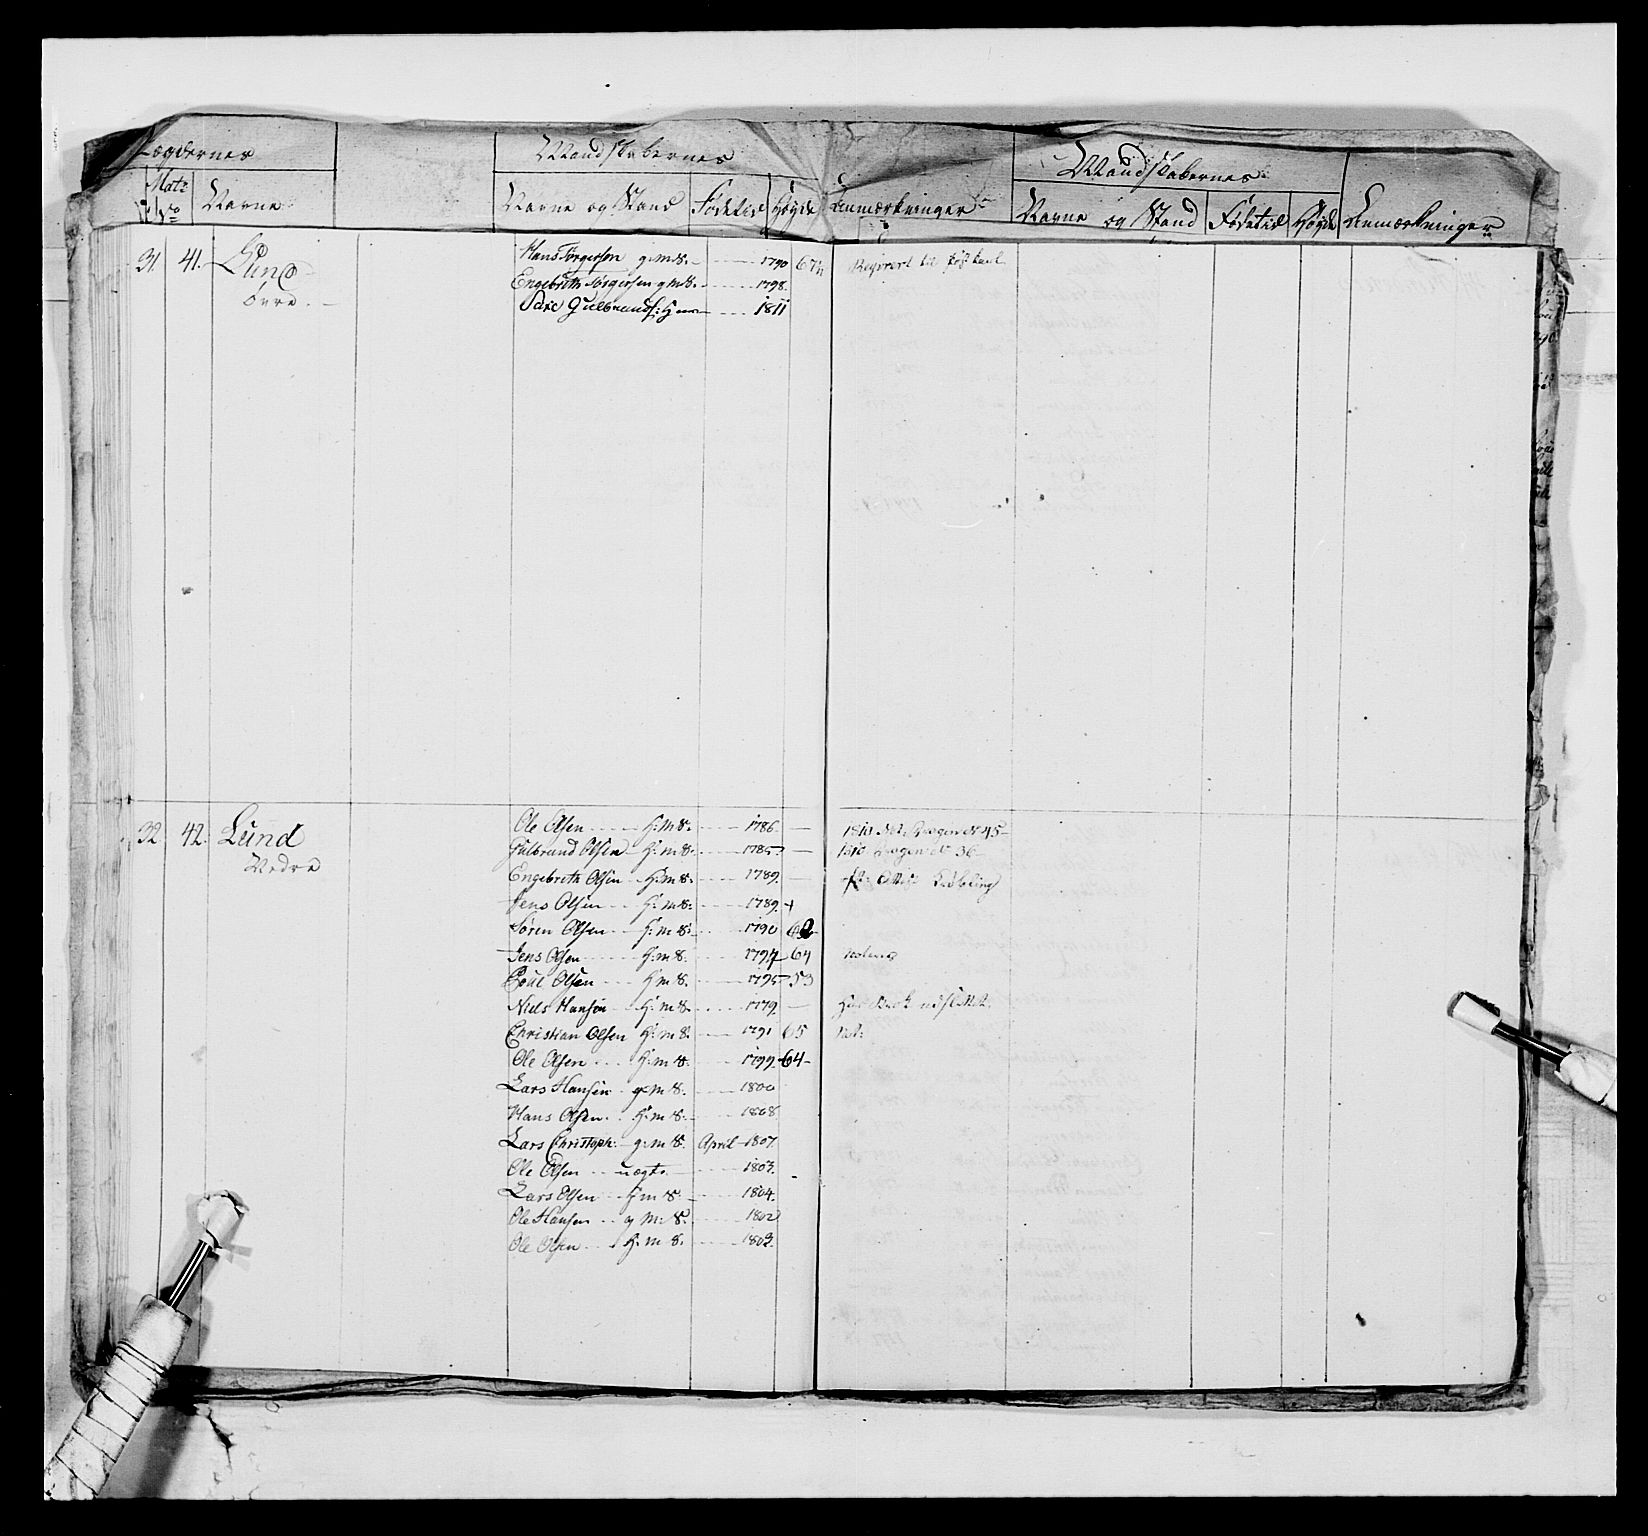 Lægdernes Mandskabernes Mandskabernes
Matr No Navne Navne og Stand Fødetid Høyde Anmærkninger Navne og Stand Fødetid Høyde Anmærkninger
31. 41. Lund Hans Torgersen g:m:S. 1790 67½
Øvre. Engebreth Torgersen g:m:S. 1798.
Gulbrands: 1811
32 42. Lund Ole Olsen H:m:S. 1786 — 1810 45
Gulbrand Olsen H:m:S. 1785 — 1810 36
Nedre Engebreth Olsen H:m:S. 1789. —
Jens Olsen H:m:S. 1789.
Søren Olsen H:m:S. 1790
Jens Olsen H:m:S. 1794 64
Poul Olsen H:m:S. 1795 53
Niels Hansen H:m:S. 1779. —
Christian Olsen H:m:S. 1791 65 Not:
Ole Olsen H:m:S. 1799. 64
Lars Hansen g:m:S. 1800
Hans Olsen H:m:S. 1808.
Lars Christoph: g:m:S. April 1807.
Ole Olsen uægte 1803.
Lars Olsen H:m:S. 1804.
Ole Hansen g:m:S. 1802
Ole Olsen H:m:S. 1803.